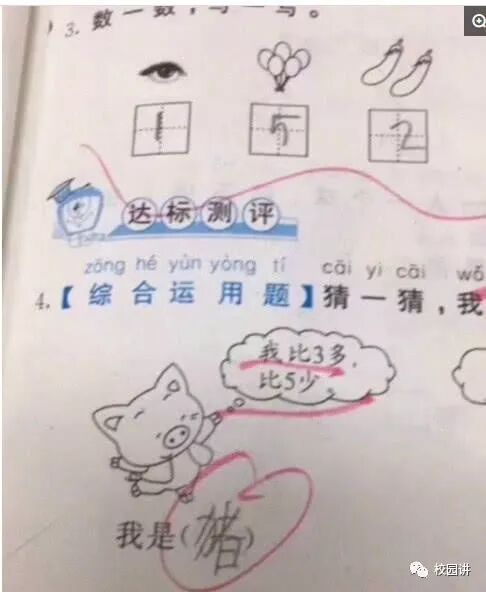 ) 3. 数一数,写一写。
1 5 2
达标测评
zōng hé yùn yòng tí cāi yi cāi wǒ
4.【综合运用题】猜一猜,我
我比3多,
比5少。
我是(猪)
校园讲